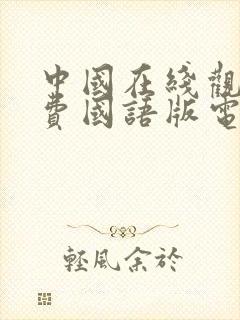 中國在綫觀
費國語版電
輕風余於